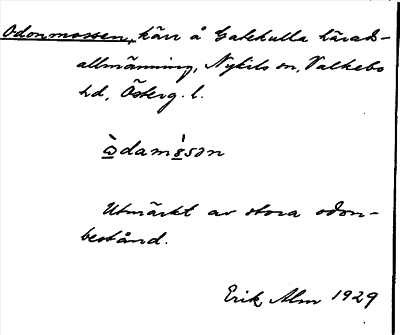 Odonmossen, kärr å Galtkulla härads-
allmänning, Nykils sn, Valkebo
hd, Österg. l.
Utmärkt av stora odon-
bestånd.
Erik Alm 1929